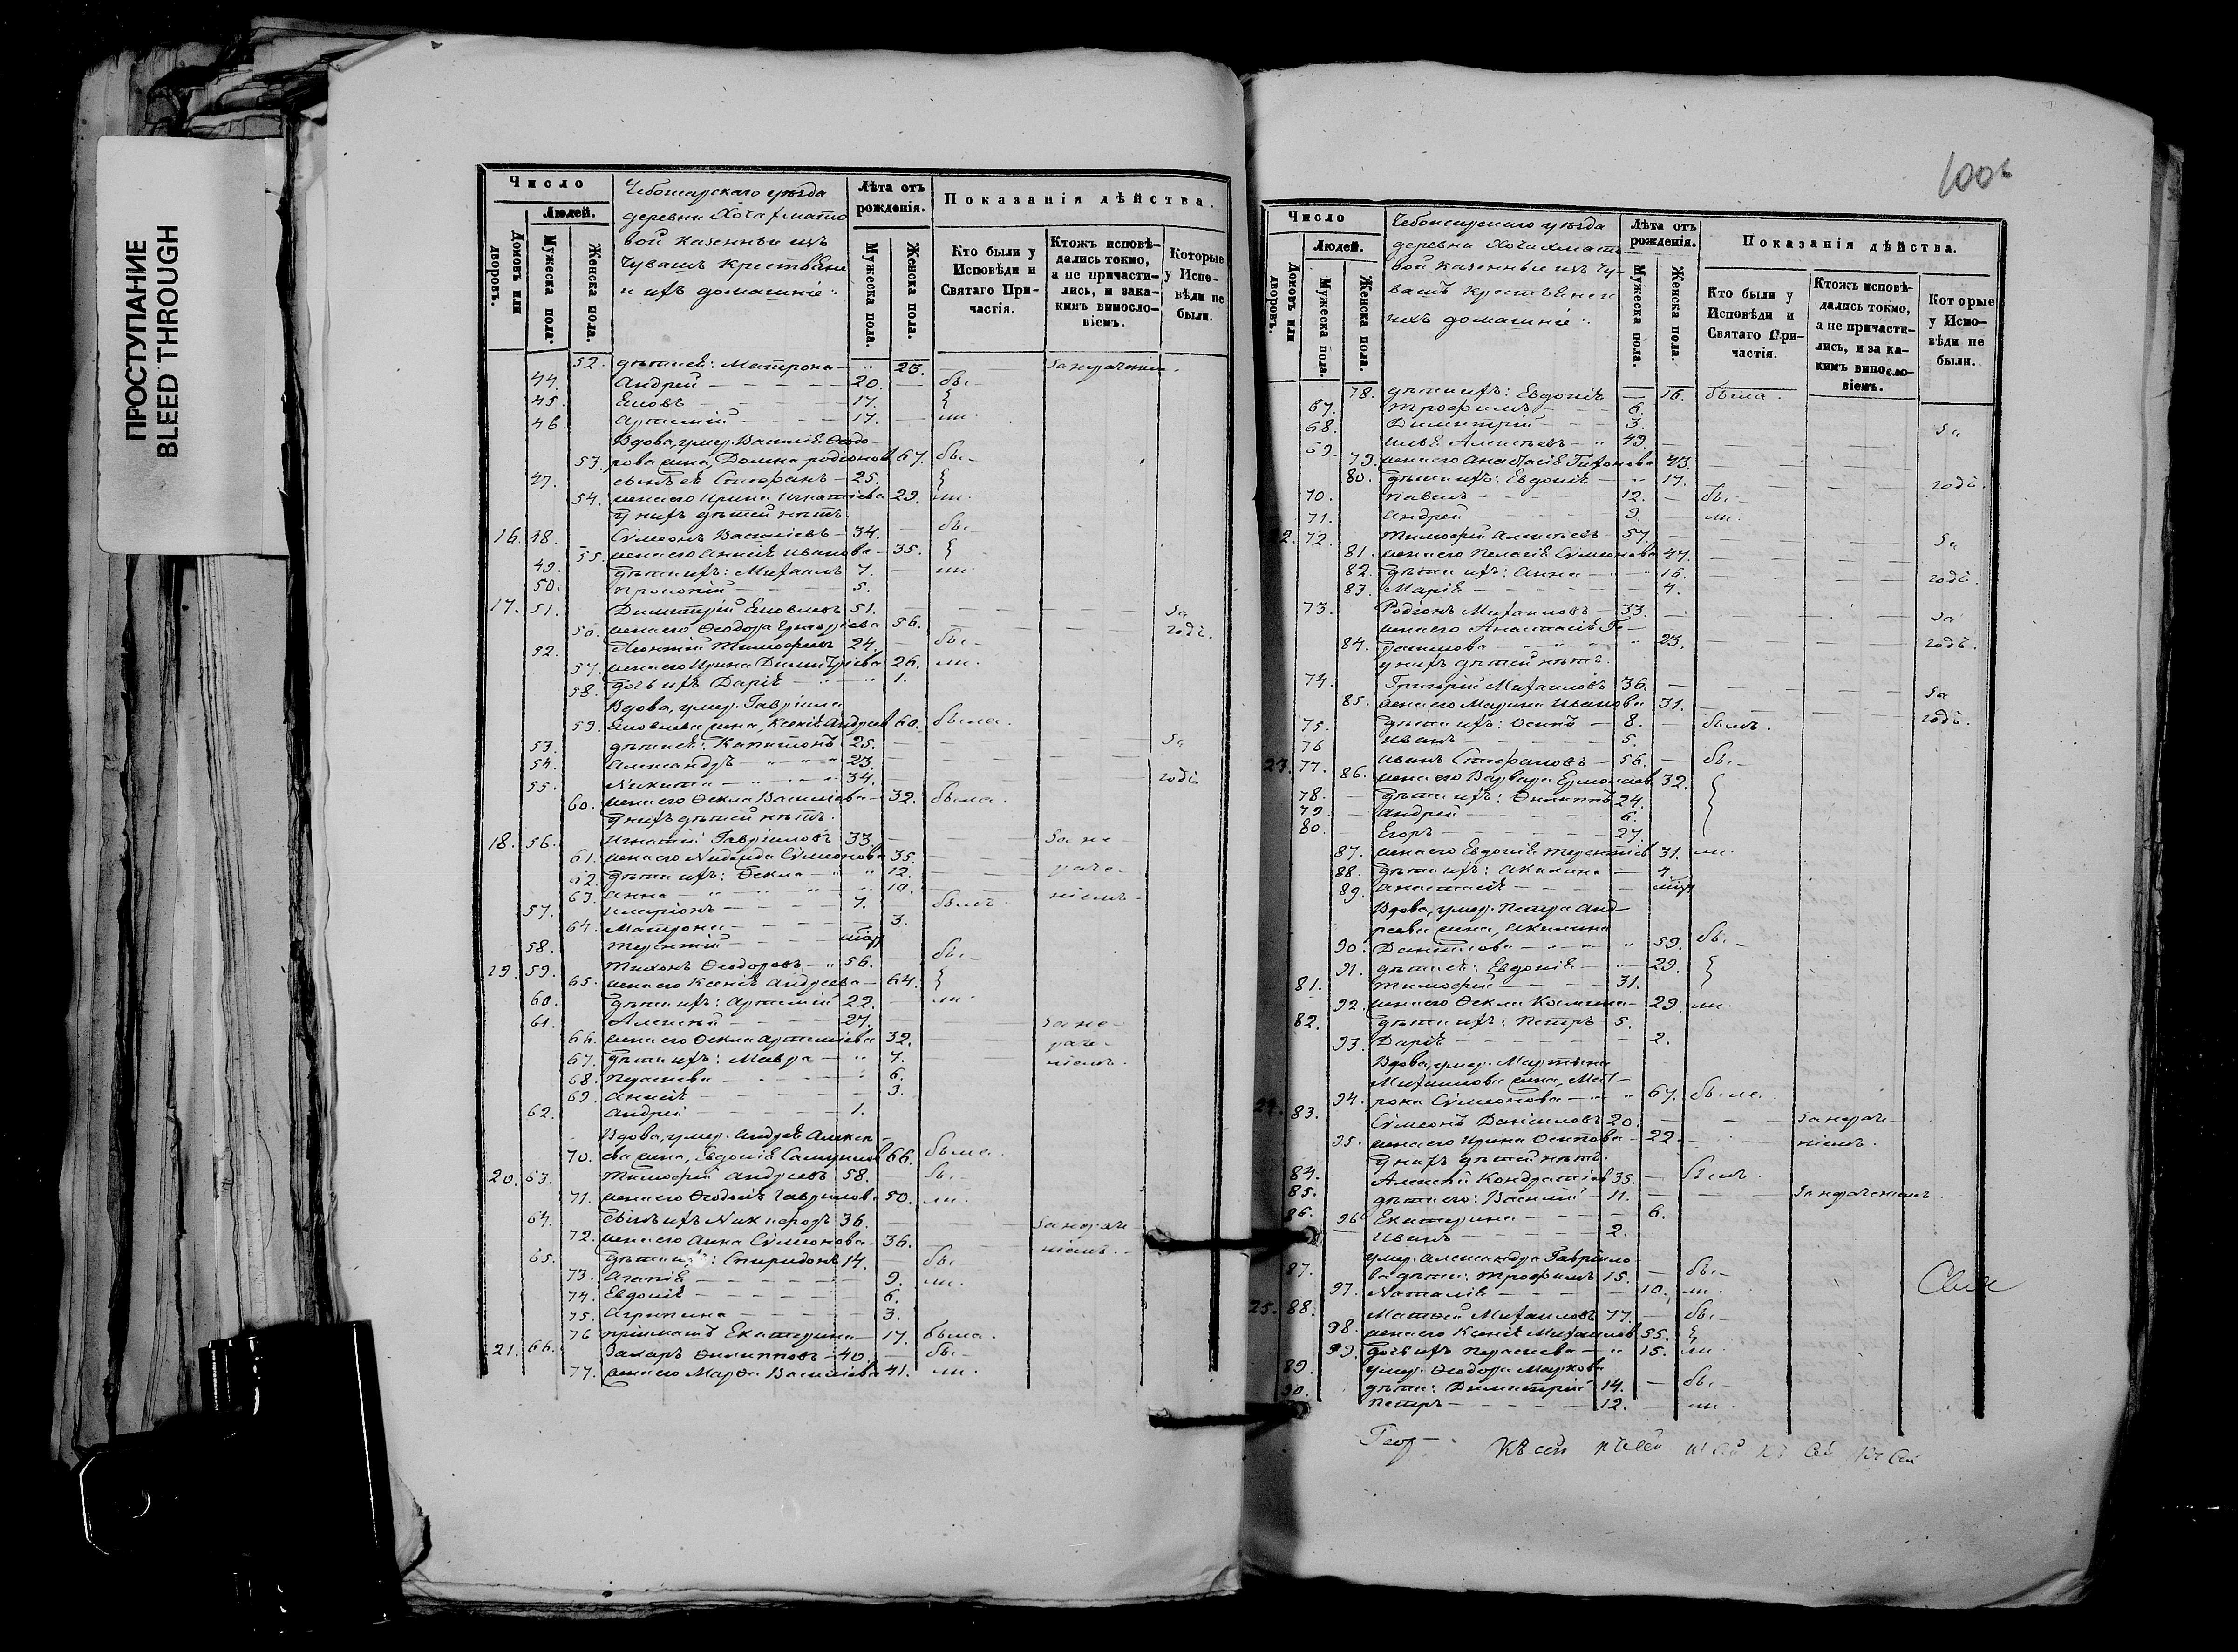 ПРОСТУПАНИЕ
BLEED THROUGH
Число
Людей.
Домовъ или дворовъ.
Мужеска пола.
Женска пола.
Чебоксарскаго уѣзда
деревни
вой казенные изъ
Чувашъ Крестьяне
и ихъ домашніе:
Лѣта отъ рожденія.
Мужеска пола.
Женска пола.
Показанія дѣйства.
Кто были у Исповѣди и Святаго Причастія.
Ктожъ исповѣдались токмо, а не причастились, и закакимъ винословіемъ.
Которые у Исповѣди не были.
52. дѣти ей: Матрона — 23.
44. Андрей — 20. — бы-
45. 17.
46. Артемій — 17. — ли.
Вдова, умер. Василія Ѳеодо-
53. рова жена, Домна Родіонов 67. бы-
47. сынъ ея Стефанъ — 25.
54. жена его Ирина Игнатіева 29. ли.
У нихъ дѣтей нѣтъ.
16. 48. Сѵмеонъ Васильевъ — 34. — бы-
55. жена его Анисія Иванова — 35.
49. дѣти ихъ: Михаилъ 7. — ли.
50. 5.
17. 51. Димитрій Яковлевъ 51. — за
56. жена его Ѳеодора Григоріева 56. годъ.
52. Леонтій Тимофеевъ 24. бы-
57. жена его Ирина Димитріева 26. ли.
58. дочь ихъ Дарія — 1.
Вдова, умер. Гавріила
59. Яковлева жена, Ксенія Андреев 60. была.
53. дѣти ея: Капитонъ 25. — за
54. Александръ — 23.
55. Никита — 34. — годъ
60. жена его Ѳекла Васильева — 32. была.
У нихъ дѣтей нѣтъ.
18. 56. Игнатій Гавриловъ 33. — за не
61. жена его Сѵмеонова 35.
62. дѣти ихъ: Ѳекла — 12. — раче-
63. Анна — 10. ніемъ
57. Иларіонъ — 7. былъ
64. Матрона — 3.
58. Терентій —
19. 59. Тихонъ Ѳеодоровъ — 56. бы-
65. жена его Ксенія Андреева — 64.
60. дѣти ихъ: Артемій 22. — ли.
61. Алексѣй — 27. — за не-
66. жена его Ѳекла Артеміева 32. раче-
67. дѣти ихъ: Мавра — 7. ніемъ.
68. 6.
69. Анисія — 3.
62. Андрей — 1.
Вдова, умер. Андрея Алексѣ-
70. ева жена, Евдокія Самуилов 66. была.
20. 63. Тимофей Андреевъ 58. бы-
71. жена его Ѳеодосія Гаврилова 50. ли.
64. Сынъ ихъ Никифоръ 36. — за нераче-
72. жена его Анна Сѵмеонова 36. ніемъ.
65. дѣти ихъ: Спиридонъ 14. — бы-
73. Агапія — 9. ли.
74. Евдокія — 6.
75. Агрипина — 3.
76 Екатерина — 17. была.
21. 66. Захаръ Филипповъ 40. — бы-
77. жена его Марѳа Васильева 41. ли.
Число
Людей.
Домовъ или дворовъ.
Мужеска пола.
Женска пола.
Чебоксарскаго уѣзда
деревни
вой казенные изъ Чу-
вашъ Крестьяне и
ихъ домашніе:
Лѣта отъ рожденія.
Мужеска пола.
Женска пола.
Показанія дѣйства.
Кто были у Исповѣди и Святаго Причастія.
Ктожъ исповѣдались токмо, а не причастились, и за какимъ винословіемъ.
Которые у Исповѣди не были.
78. дѣти ихъ: Евдокія — 16. была.
67. Трофимъ — 6.
68. Димитрій — 3. за
69. Илья Алексѣевъ — 49.
79. жена его Анастасія Тихонова 43.
80. дѣти ихъ: Евдокія — 17. годъ.
70. Павелъ 12. — бы-
71. Андрей 9. — ли.
22. 72. Тимофей Алексѣевъ — 57. за
81. жена его Пелагія Сѵмеонова 47.
82. дѣти ихъ: Анна — 16. годъ.
83. Марія — 4.
73. Родіонъ Михаиловъ — 33. за
жена его Анастасія Ге-
84. расимова — 23. годъ.
у нихъ дѣтей нѣтъ.
74. Григорій Михаиловъ 36. — за
85. жена его Марина Иванова 31. годъ.
75. дѣти ихъ: Осипъ — 8. — былъ.
76 Иванъ — 5.
23. 77. Иванъ Стефановъ — 56. — бы-
86. жена его Варвара Ермолаев 32.
78. дѣти ихъ: Филиппъ 24.
79. Андрей — 6.
80. Егоръ — 27.
87. жена его Евдокія Терентіев 31. ли.
88. дѣти ихъ: Акилина — 4.
89. Анастасія —
Вдова, умер. Петра Анд-
реева жена, Акилина
90. Данилова — 59. бы-
91. дѣти ея: Евдокія — 29.
81. Тимофей — 31.
92. жена его Ѳекла Козмина — 29. ли
82. дѣти ихъ: Петръ 5.
93. Дарія — 2.
Вдова, умер. Мартина
Михаилова жена, Мат-
94. рона Сѵмеонова — 67. была.
24. 83. Сѵмеонъ Даниловъ 20. — за нераче-
95. жена его Ирина Осипова — 22. ніемъ.
У нихъ дѣтей нѣтъ.
84. Алексѣй Кондратіев 35. — былъ.
85. дѣти его: Василій — 11. — за нераченіемъ.
96 Екатерина — 6.
86. Иванъ — 2.
умер. Александра Гаврило-
87. ва дѣти: Трофимъ 15. — бы-
97. Наталія — 10. ли.
25. 88. Матѳей Михаиловъ 77. — бы-
98. жена его Ксенія Михаилов 55.
99. дочь ихъ — 15. ли.
89. умер. Ѳеодора Маркова
90. дѣти: Димитрій 14. — бы-
Петръ — 12. — ли.